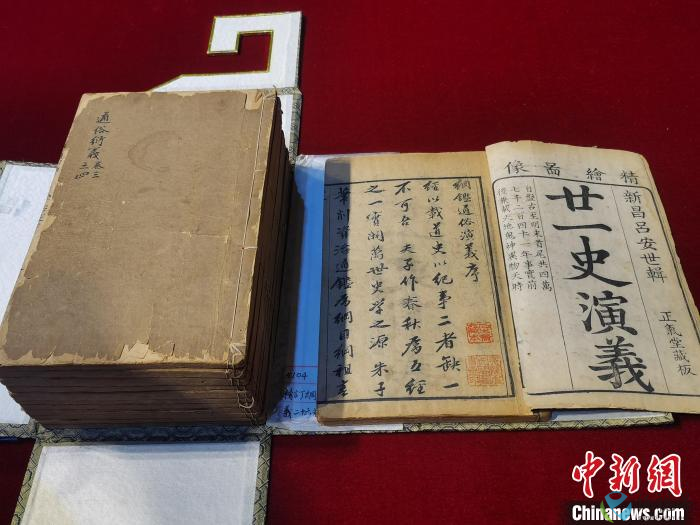 通俗衍義卷三
三四
綱鑑通俗演義序
經以載道史以紀事二者缺一
不可 夫子作春秋為五經
之一實開萬世史学之源朱子
筆削資治通鑑為綱目綱祖
精繪啚像
新昌呂安世輯
廿一史演義
自盤古至明末首尾共四萬
七千二百四十一年事實前
後兼載天地鬼神異物天時
正氣堂藏板
中新网
Chinanews.com